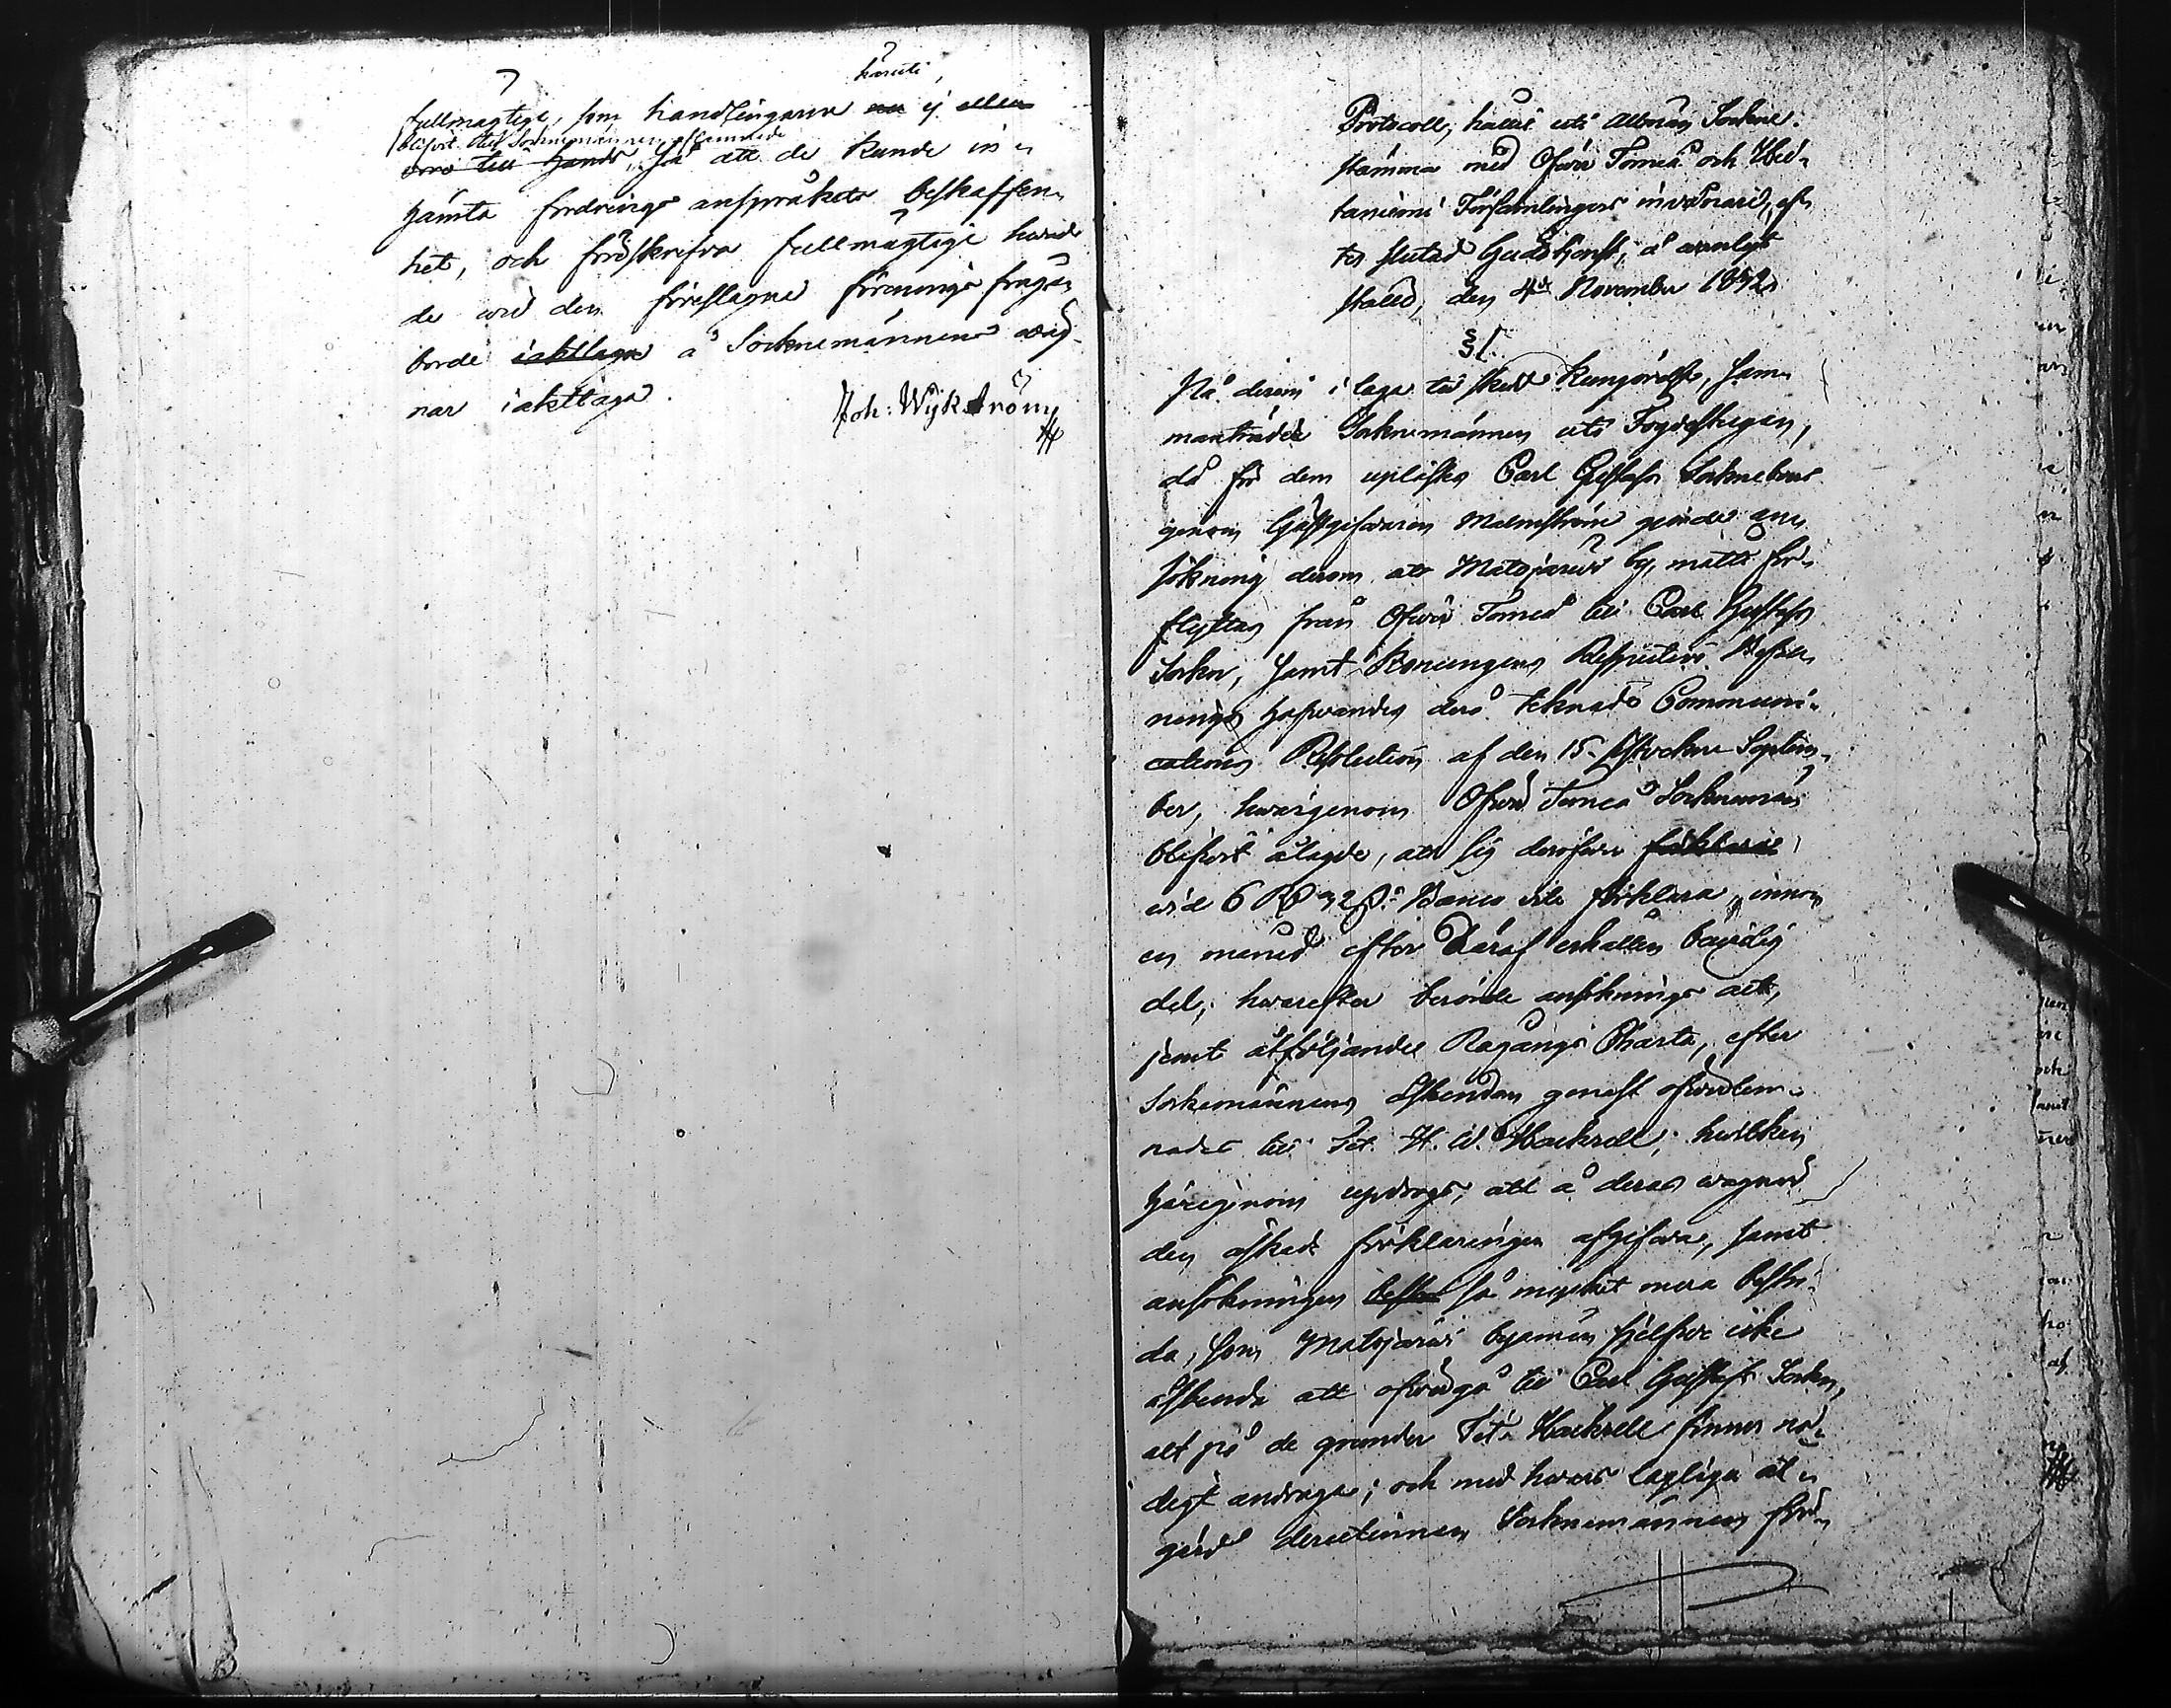 häruti,
fullmägtige, som handlingarne nu ej eller
blifvit till Socknemännen öfverlemnade
voro till hands, så att de kunde in-
hämta fordrings anspråkets beskaffen-
het, och föreskrifva fullmägtige hvad
de vid den föreslagne förenings frågan
borde iakttaga å Socknemännens väg-
nar iakttaga.
Joh: Wijkström
Protocoll, hållit uti Allmän Sockne-
stämma med Öfver Torneå och Hie-
taniemi Församlingars invånare, ef-
ter slutad Gudstjenst, å vanligt
ställe, den 4de November 1832
§ 1.
På derom i laga tid skedd kungörelse, sam-
manträdde Socknemännen uti Fogdestugan,
då för dem uplästes Carl Gustafs Sockneboers
genom Gästgifvaren Malmström gjorde an-
sökning derom att Matojärvi by måtte för-
flyttas från Öfver Torneå till Carl Gustafs
Sockn, samt Konungens Respective Befall-
nings hafvandes derå teknade Communi-
cations Resolution af den 15. sistvekne Septem-
ber, hvarigenom Öfver Torneå Socknemän
blifvit ålagde, att sig deröfver förklara
vid 6 Rd 32 s. Banco vite förklara, innom
en månad efter häraf erhållen bevislig
del; hvarefter berörde ansöknings act,
jemte åtföljande Rågångs Charta, efter
Sockemännens åstundan genast öfverlem-
nades till Tit. H. W. Hackzell, hvilken
härigenom updrogs, att å deras vagnar
den äskade förklaringen afgifva, samt
ansökningen bestri så mycket mera bestri-
da, som Matojärvi byamän sjelfve icke
åstunda att öfvergå till Carl Gustafs Sockn,
allt på de grunder Tit. Hackzell finner nö-
digt andraga; och med hvars lagliga åt-
gärd derutinnan Socknemännen för-